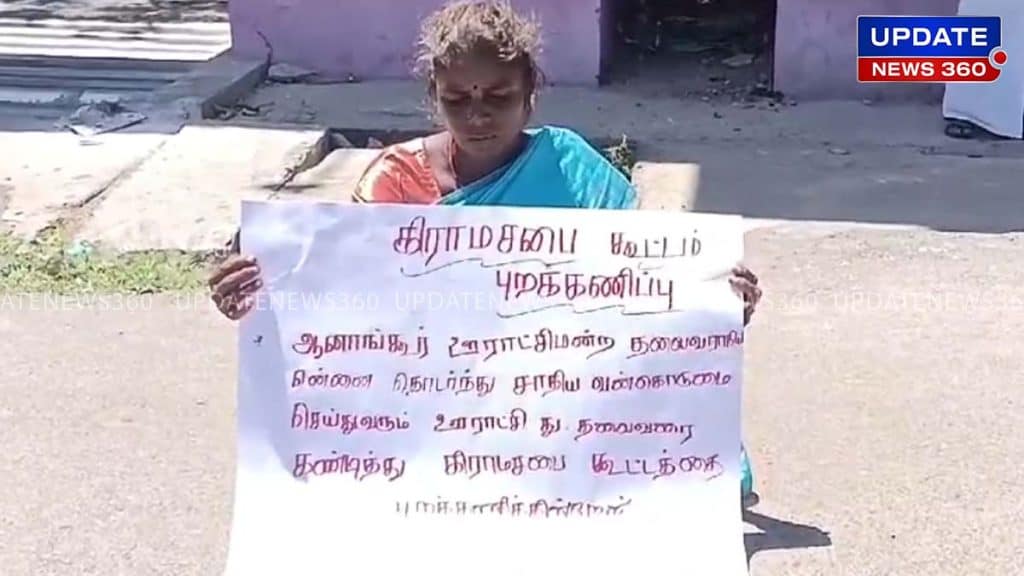 UPDATE
NEWS 360
கிராமசபை கூட்டம்
புறக்கணிப்பு
ஆனாங்கூர் ஊராட்சிமன்ற தலைவராகிய
என்னை தொடர்ந்து சாதிய வன்கொடுமை
செய்துவரும் ஊராட்சி து. தலைவரை
கண்டித்து கிராமசபை கூட்டத்தை
புறக்கணிக்கின்றேன்
UPDATENEWS360 UPDATENEWS360 UPDATENEWS360